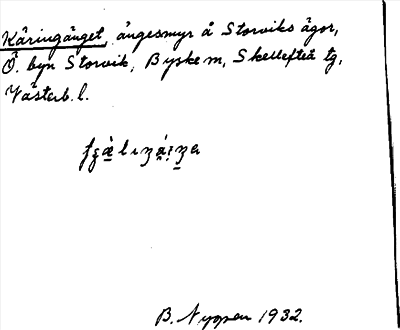 Käringänget, ängesmyr å Storviks ägor,
Ö. byn Storvik, Byske m, Skellefteå tg,
Västerb. l.
B. Nygren 1932.